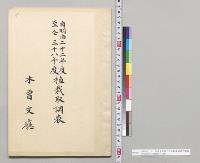 自明治二十二年度
至仝三十八年度植栽取調表
木曽支廳